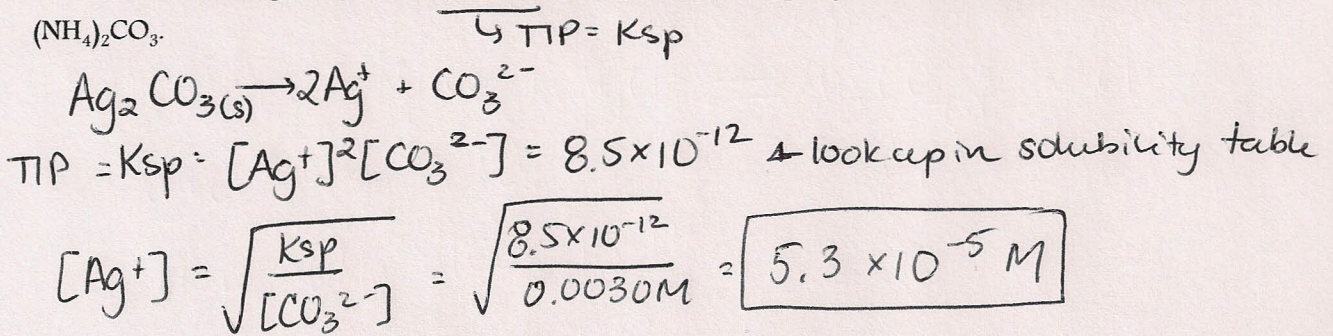 (NH₄)₂CO₃.
↳ TIP = Ksp
Ag₂CO₃(s) → 2Ag⁺ + CO₃²⁻
TIP = Ksp = [Ag⁺]²[CO₃²⁻] = 8.5×10⁻¹² ← look up in solubility table
[Ag⁺] = √(Ksp / [CO₃²⁻]) = √(8.5×10⁻¹² / 0.0030M) = 5.3 ×10⁻⁵ M